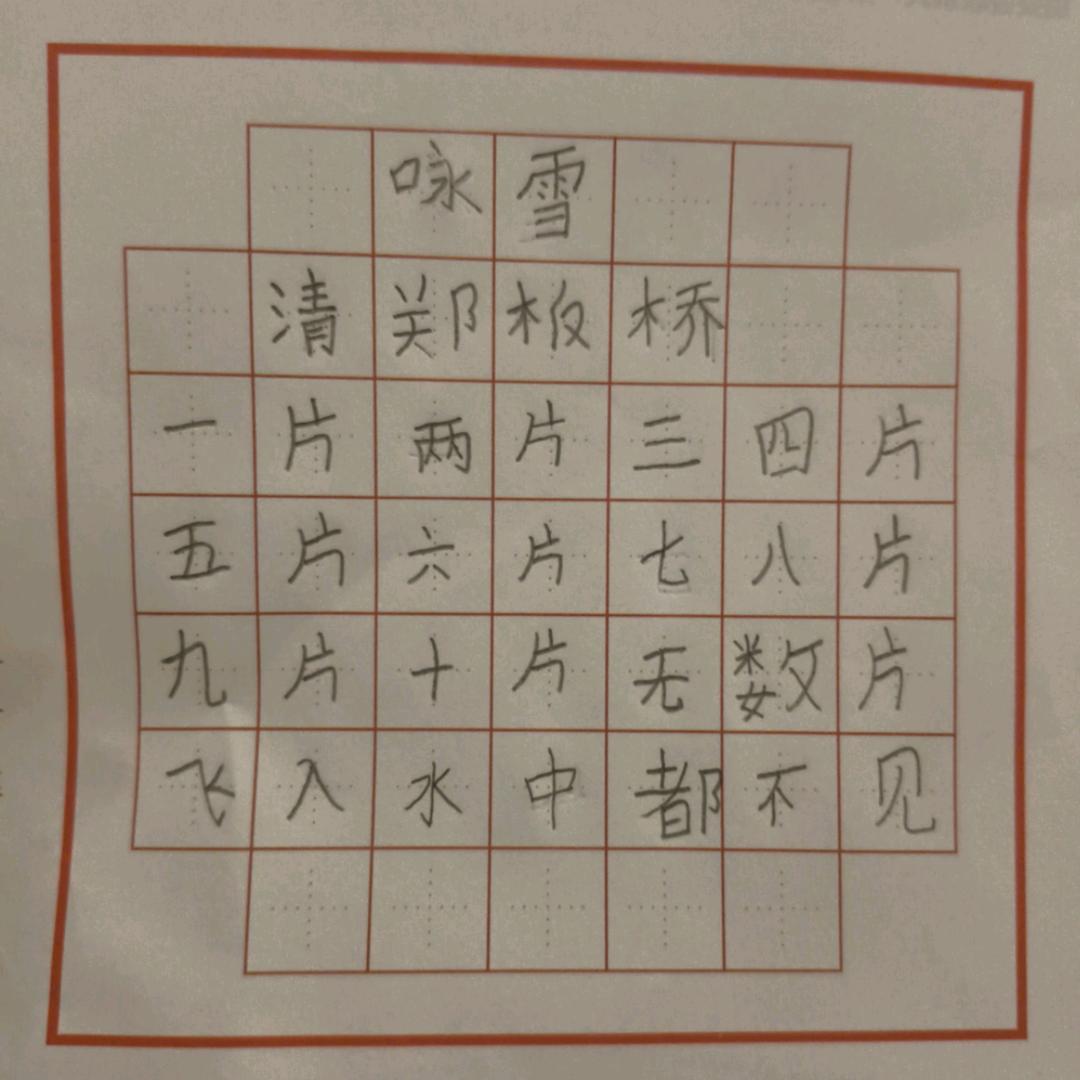 咏雪
清郑板桥
一片两片三四片
五片六片七八片
九片十片无数片
飞入水中都不见